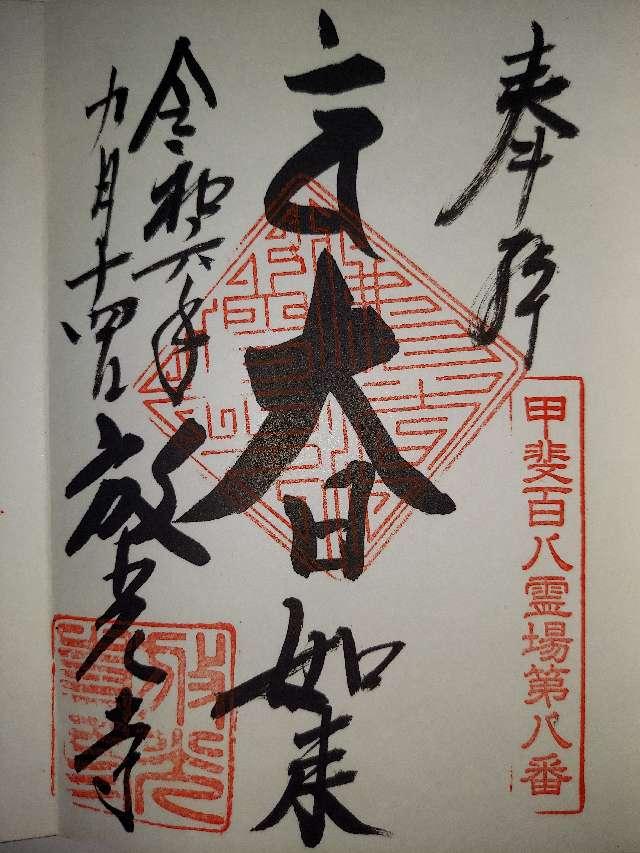 奉拝
甲斐百八霊場第八番
大日如来
令和六年
九月十四日
放光寺